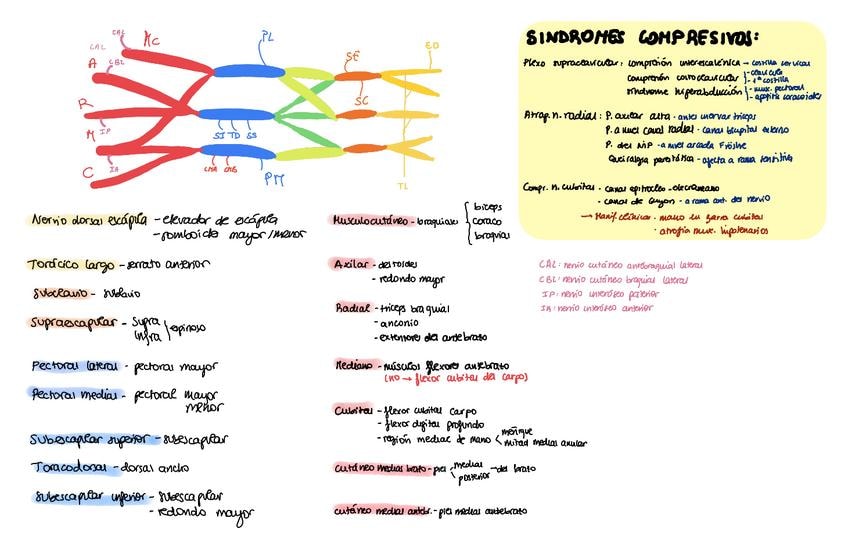 CAL
CAL
MC
A
CBL
R
IP
M
IA
C
PL
SE
ED
SC
SI TD SS
CMA CMB
PM
TL
Nervio dorsal escápula - elevador de escápula
- romboide mayor/menor
Torácico largo - serrato anterior
Subclavio - subclavio
Supraescapular - Supra
Infra } espinoso
Pectoral lateral - pectoral mayor
Pectoral medial - pectoral mayor
menor
Subescapular superior - subescapular
Toracodorsal - dorsal ancho
Subescapular inferior - subescapular
- redondo mayor
Musculocutáneo - braquiales { biceps
coraco
braquial
Axilar - deltoides
- redondo mayor
Radial - triceps braquial
- anconio
- extensores del antebrazo
Mediano - músculos flexores antebrazo
(NO → flexor cubital del carpo)
Cubital - flexor cubital carpo
- flexor digital profundo
- región medial de mano < meñique
mitad medial anular
Cutáneo medial brazo - piel < medial
posterior - del brazo
Cutáneo medial antebr. - piel medial antebrazo
SINDROMES COMPRESIVOS:
Plexo supraclavicular: compresión interescalénica → costilla cervical
compresión costoclavicular - clavícula
- 1ª costilla
síndrome hiperabducción - musc. pectoral
- apófisis coracoides
Atrap. n. radial: P. axilar alta - antes inervar triceps
P. a nivel canal radial - canal bicipital externo
P. del NIP - a nivel arcada Fröhse
Queiralgia parestésica - afecta a rama sensitiva
Compr. n. cubital - canal epitrocleo-olecraneano
- canal de Guyon - a rama ant. del nervio
→ Manif. clínica: mano en garra cubital
· atrofia musc. hipotenarios
CAL: nervio cutáneo antebraquial lateral
CBL: nervio cutáneo braquial lateral
IP: nervio interóseo posterior
IA: nervio interóseo anterior